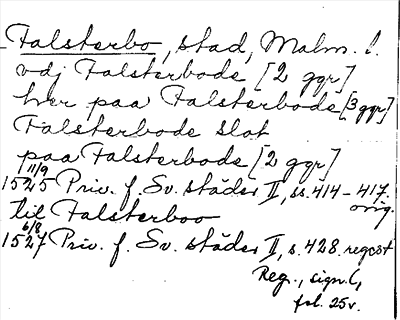 Falsterbo, stad, Malm. l.
vdj Falsterbode [2 ggr]
her paa Falsterbode [3 ggr]
Falsterbode slot
paa Falsterbode [2 ggr]
11/9
1525 Priv. f. Sv. städer II, ss. 414-417. orig.
til Falsterboo
6/8
1527 Priv. f. Sv. städer II, s. 428. regest
Reg., sign. C,
fol. 25v.